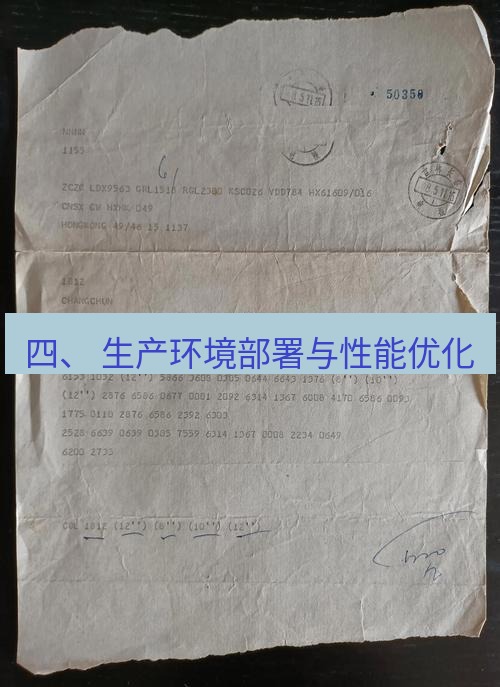 50358
NNNN
1155
ZCZC LDX9563 GRL1518 RGL2380 KSC026 VDD784 HX61609/D16
CNSX CW HXHK 049
HONGKONG 49/46 15 1137
1812
CHANGCHUN
四、 生产环境部署与性能优化
6153 1032 (12'') 5866 3608 0305 0644 6643 1376 (8'') (10'')
(12'') 2876 6586 0677 0081 2092 6314 1367 6008 4170 6586 0093
1775 0110 2876 6586 2392 6303
2528 6639 0639 0305 7559 6314 1367 0008 2234 0649
6200 2733
COL 1812 (12'') (8'') (10'') (12'')